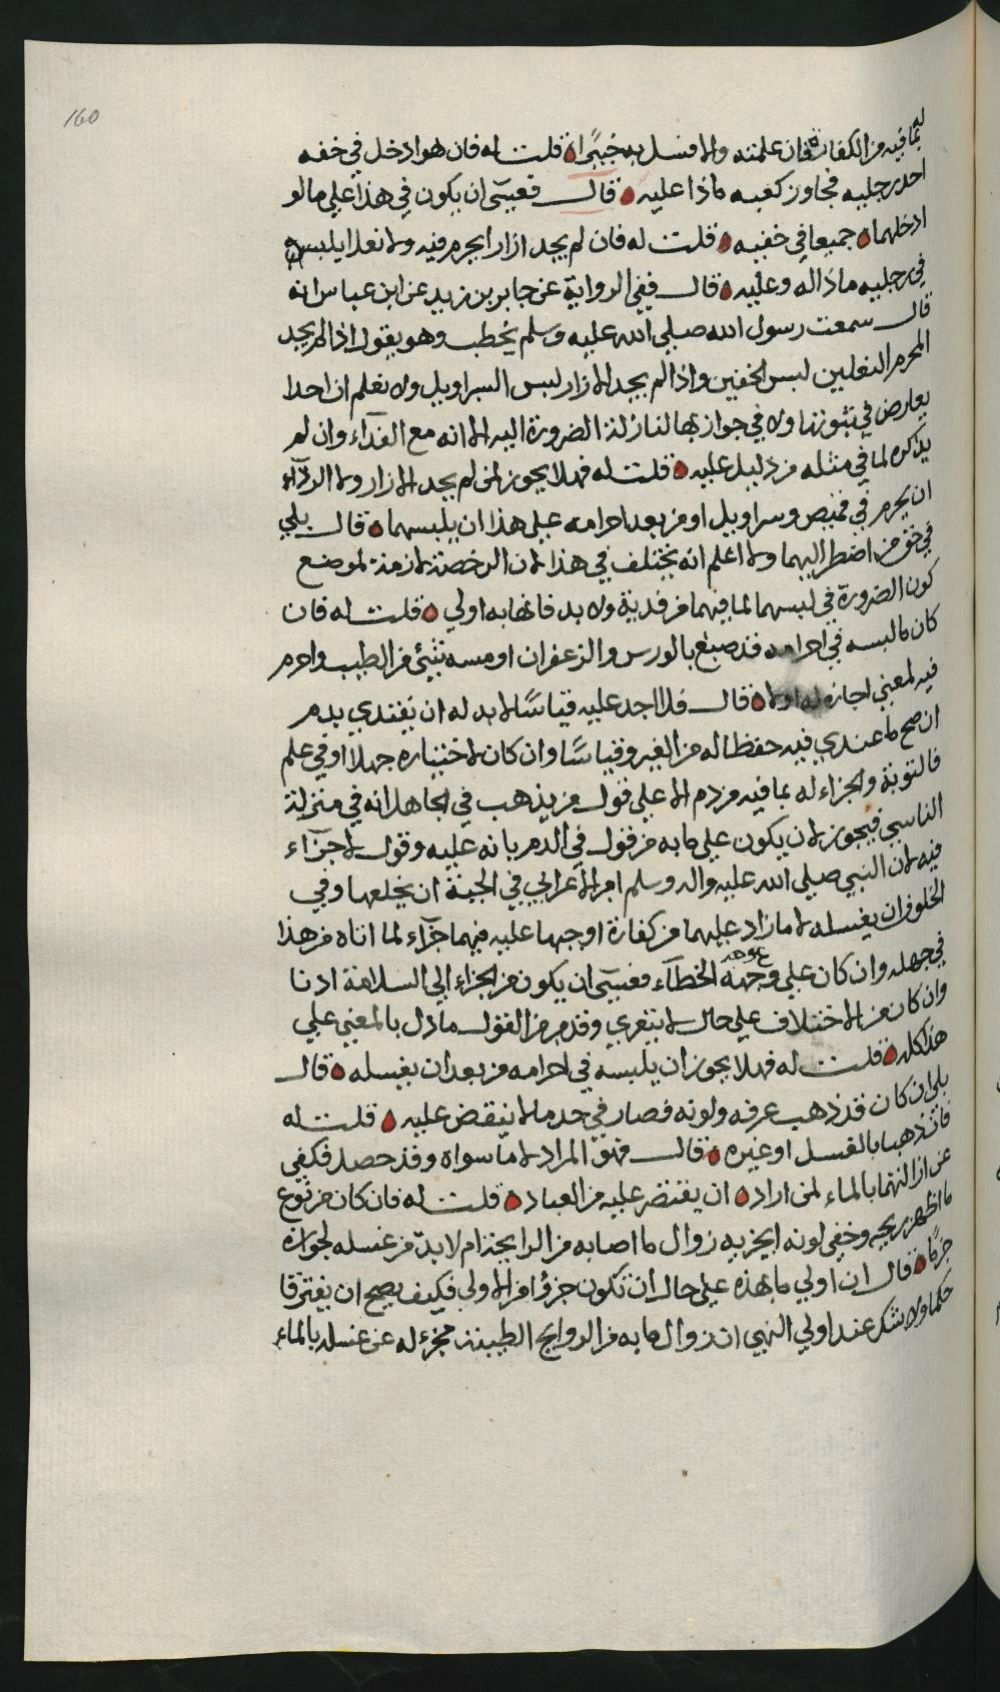 160
له بما فيه من الكفارة فان علمته والا فسل به خبيرا قلت له فان هو ادخل في خفه
احد رجليه فجاوز كعبه ماذا عليه قال فعسى ان يكون في هذا على ما لو
ادخلهما جميعا في خفيه قلت له فان لم يجد ازارا يحرم فيه ولا نعلا يلبسه
في رجليه ماذا له وعليه قال ففي الرواية عن جابر بن زيد عن ابن عباس انه
قال سمعت رسول الله صلى الله عليه وسلم يخطب وهو يقول اذا لم يجد
المحرم النعلين لبس الخفين واذا لم يجد الازار لبس السراويل ولا نعلم ان احدا
يعارض في ثبوتها ولا في جواز بها لنازلة الضرورة اليه الا انه مع الفداء وان لم
يذكره لما في مثله من دليل عليه قلت له فهلا يجوز لمن لم يجد الازار ولا الرداء
ان يحرم في قميص وسراويل او من بعد احرامه على هذا ان يلبسهما قال بلى
في حق من اضطر اليهما ولا اعلم انه يختلف في هذا لان الرخصة لازمة لموضع
كون الضرورة في لبسهما لما فيهما من فدية ولا بد فانها به اولى قلت له فان
كان ما لبسه في احرامه قد صبغ بالورس والزعفران او مسه شيئ من الطيب واحرم
فيه لمعنى اجازه له اولا قال فلا اجد عليه قياسًا لابد له ان يفتدي بدم
ان صح ما عندي فيه حفظا له من الغير وقياسًا وان كان لاختياره جهلا او في علم
فالتوبة والجزاء له بما فيه من دم الا على قول من يذهب في الجاهل انه في منزلة
الناسي فيجوز لان يكون على ما به من قول في الدم بانه عليه وقول لا جزاء
فيه لان النبي صلى الله عليه واله وسلم امر الاعرابي في الجبة ان يخلعها وفي
الخلوق ان يغسله لا ما زاد عليهما من كفارة اوجبها عليه فيهما جزاء لما اتاه من هذا
في جهله وان كان على وجهة الخطآء فعسى ان يكون من الجزاء الى السلامة ادنا
وان كان من الاختلاف على حال لا يتعرى وقد مر من القول ما دل بالمعنى على
هذا كله قلت له فهلا يجوز ان يلبسه في احرامه من بعد ان يغسله قال
بلى ان كان قد ذهب عرفه ولونه فصار في حد ما لا ينقض عليه قلت له
فان ذهبا بالغسل او غيره قال فهو المراد لا ما سواه وقد حصل فكفى
عن ازالتهما بالماء لمن اراده ان يقتصر عليه من العباد قلت له فان كان من نوع
ما اظهر ريحه وخفى لونه ايجزيه زوال ما اصابه من الرايحة ام لا بد من غسله لجوازه
جزمًا قال ان اولى ما بهذه على حال ان تكون جزؤا من الاولى فكيف يصح ان يفترقا
حكما ولا شك عند اولي النهى ان زوال ما به من الروايح الطيبة مجزء له عن غسله بالماء